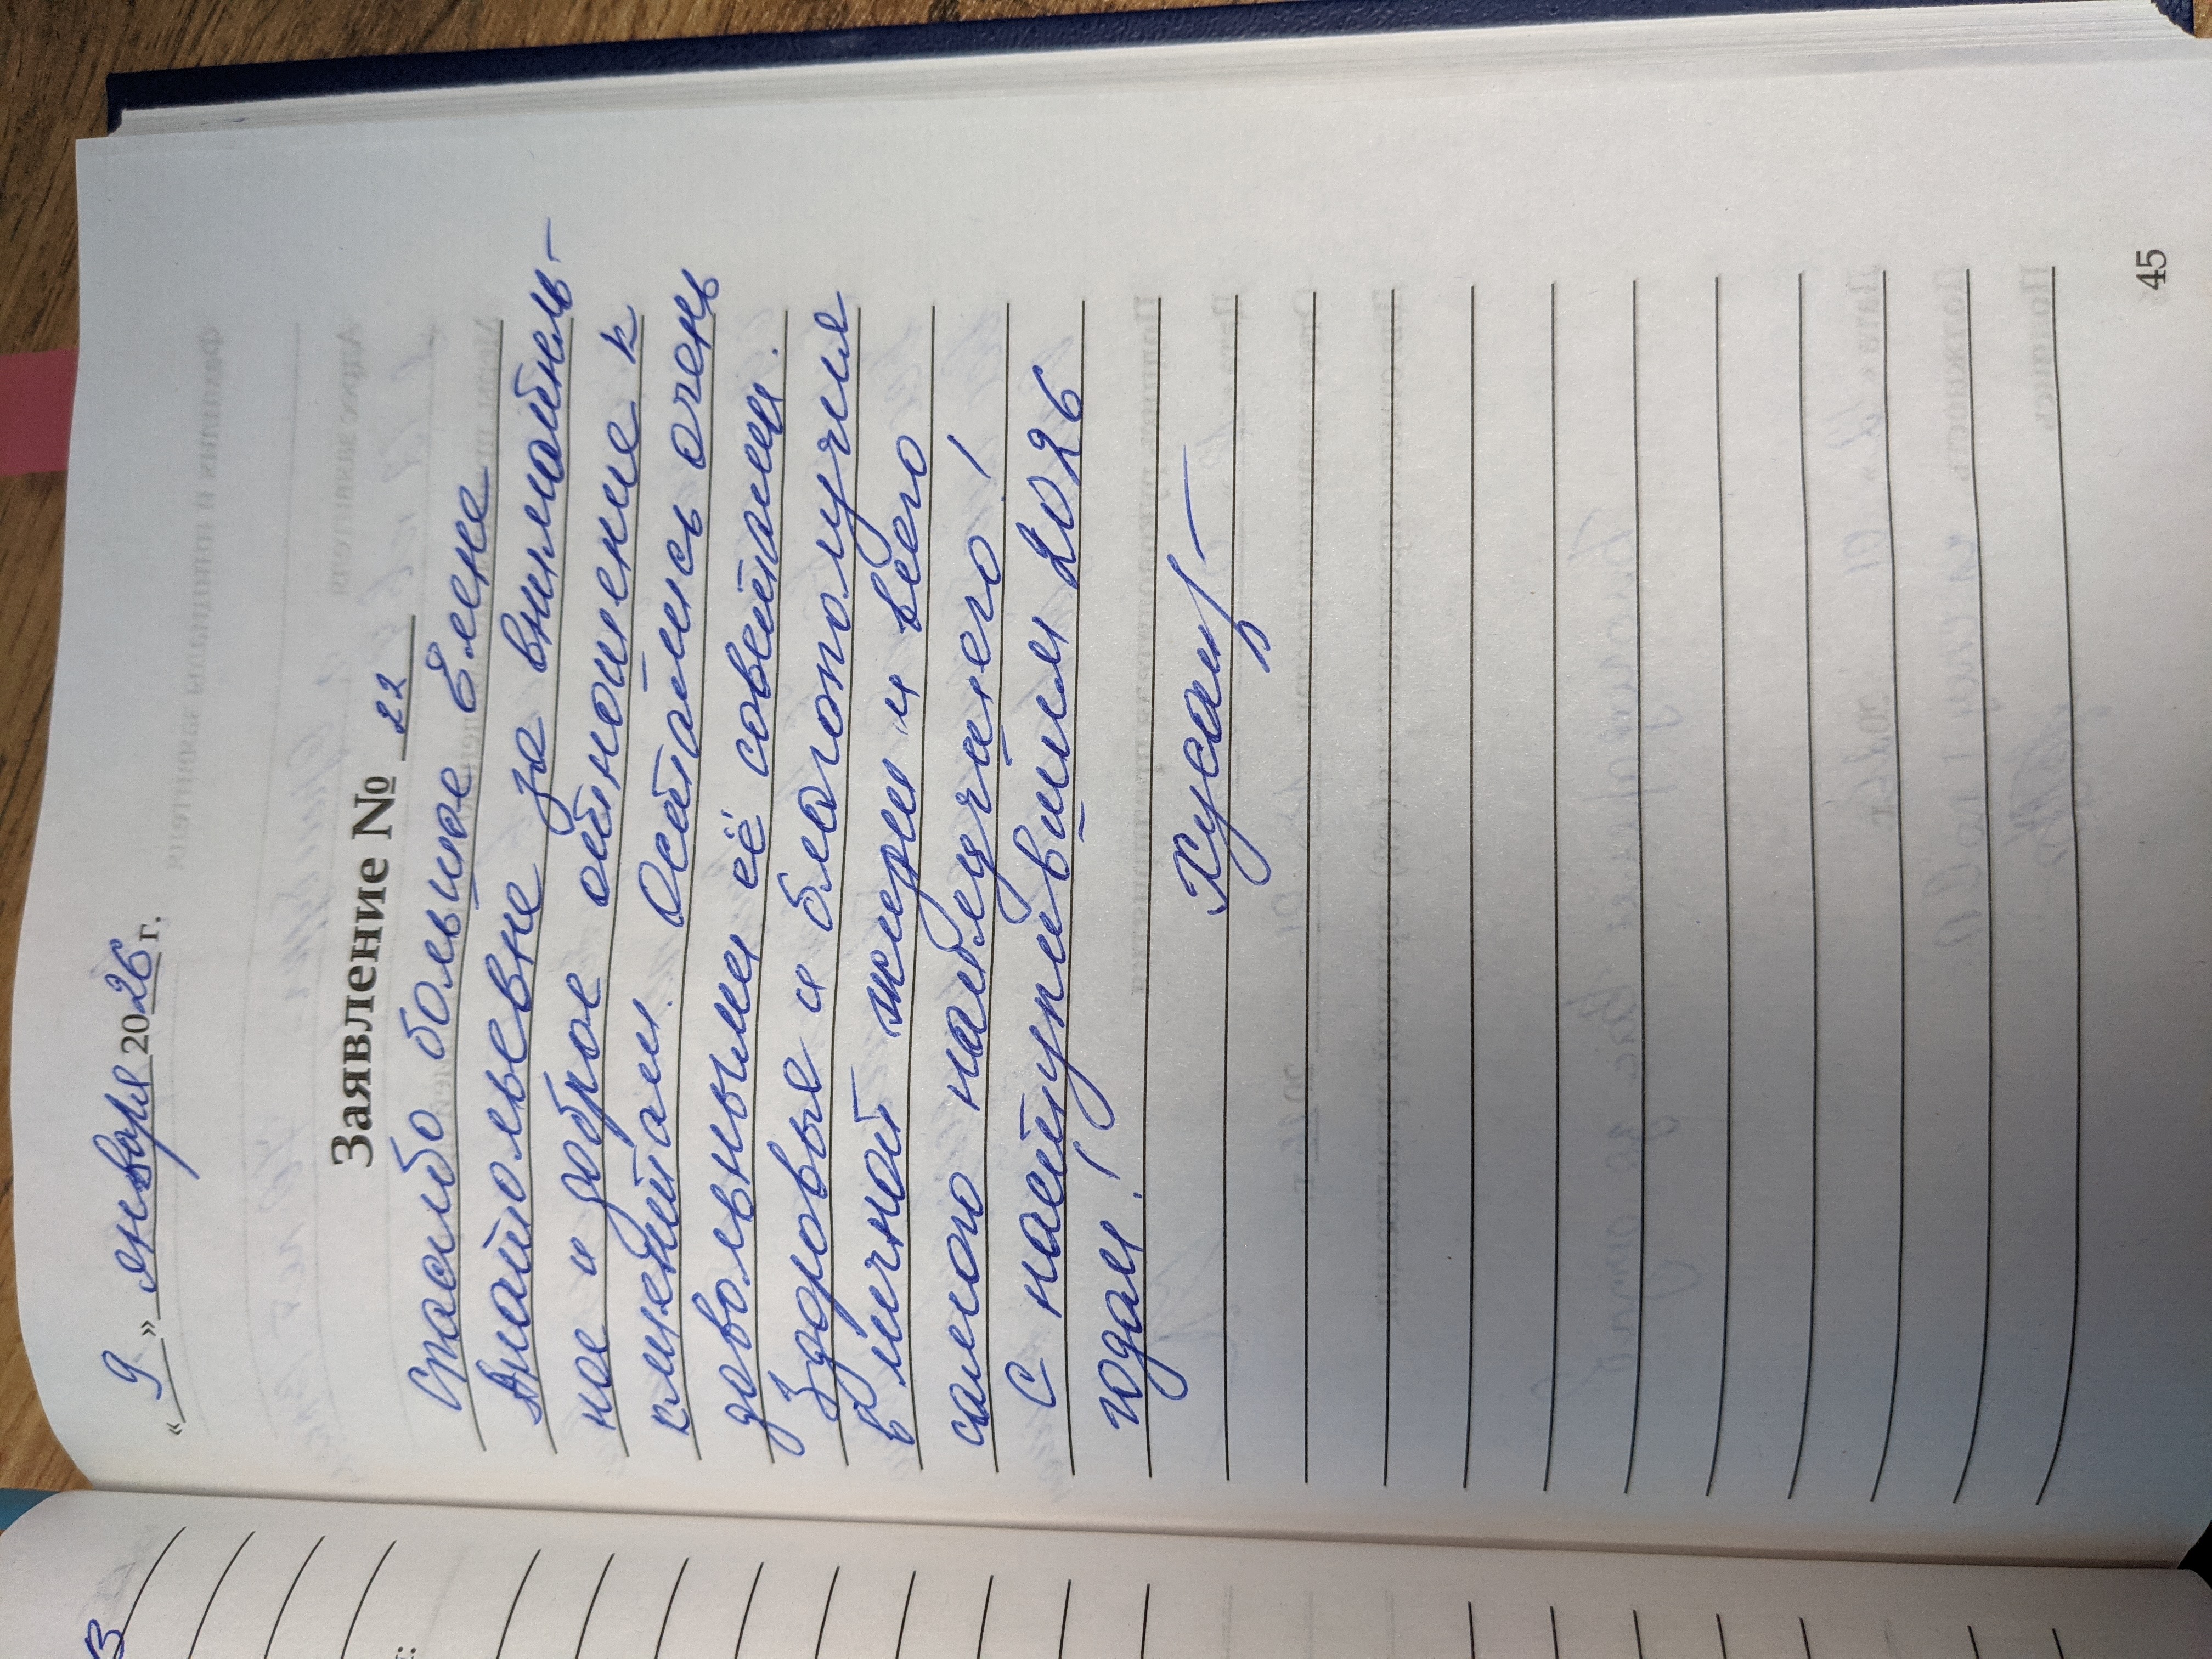 «9» января 2026 г.
Заявление № 22
Спасибо большое Елене
Анатольевне за вниматель-
ное и доброе отношение к
клиентам. Остались очень
довольными её советами.
Здоровья и благополучия
в личной жизни и всего
самого наилучшего!
С наступившим 2026
годом!
45